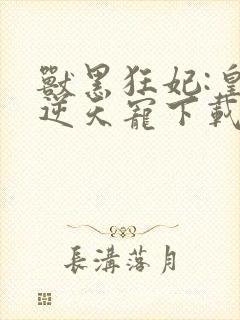 獸黑狂妃:皇
逆天寵下載
長溝落月